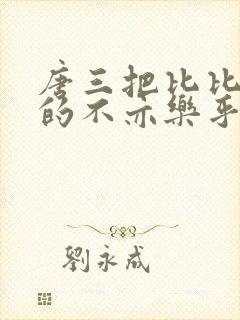 唐三把比比
的不亦樂乎
劉永成